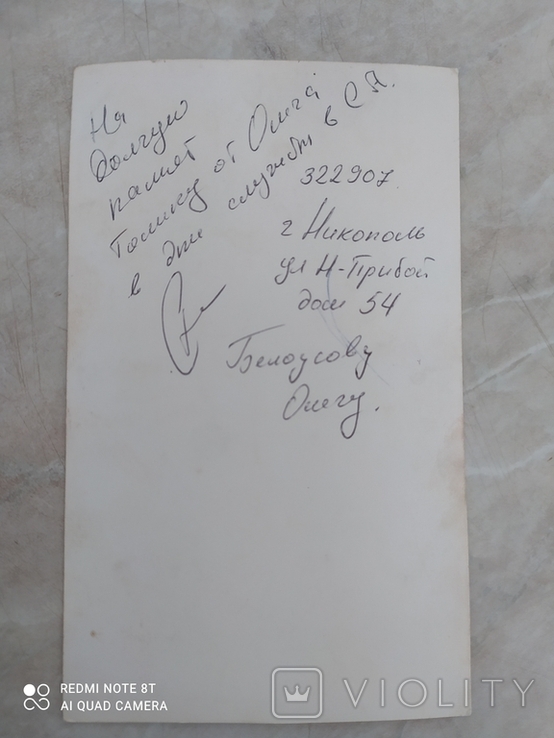 На
долгую
памят
Толику от Олега
в дни службы в С А.
322907
г Никополь
ул Н-Прибой
дом 54
Белоусову
Олегу.
REDMI NOTE 8T
AI QUAD CAMERA
VIOLITY